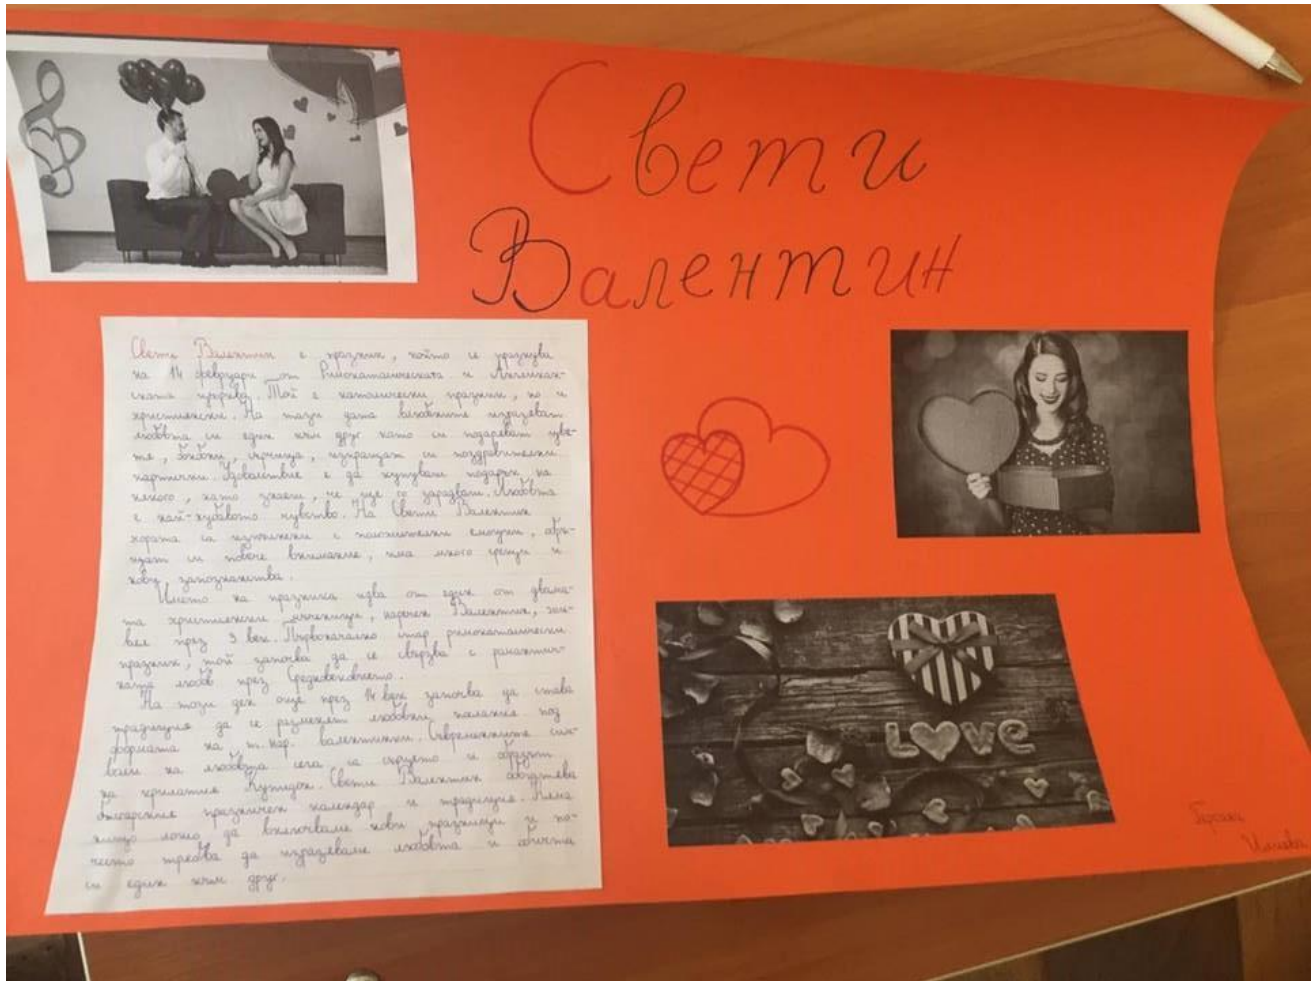 Свети
Валентин
Свети Валентин е празник, който се празнува
на 14 февруари от Римокатолическата и Англикан-
ската църква. Той е католически празник, но и
християнски. На тази дата влюбените изразяват
любовта си един към друг като си подаряват цве-
тя, бонбони, сърчица, изпращат си поздравителни
картички. Удоволствие е да купуваш подарък на
някого, като знаеш, че ще го зарадваш. Любовта
е най-хубавото чувство. На Свети Валентин
хората са изпълнени с положителни емоции, обръ-
щат си повече внимание, има много срещи и
нови запознанства.
Името на празника идва от един от двама-
та християнски мъченици, наречен Валентин, жи-
вял през 3 век. Първоначално стар римокатолически
празник, той започва да се свързва с романтич-
ната любов през Средновековието.
На този ден още през 14 век започва да става
традиция да се разменят любовни послания под
формата на т. нар. валентинки. Съвременните сим-
воли на любовта сега са сърцето и образът
на крилатия Купидон. Свети Валентин обогатява
българския празничен календар и традиция. Няма
нищо лошо да включваме нови празници и по-
често трябва да изразяваме любовта и обичта
си един към друг.
LOVE
Гергана
Илиева